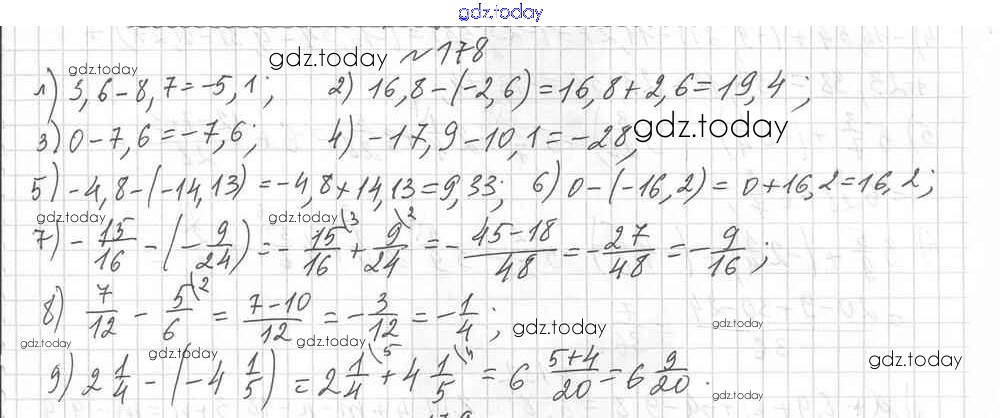 gdz.today
gdz.today №178
gdz.today
1) 3,6-8,7=-5,1; 2) 16,8-(-2,6)=16,8+2,6=19,4;
3) 0-7,6=-7,6; 4) -17,9-10,1=-28, gdz.today
5) -4,8-(-14,13)=-4,8+14,13=9,33; 6) 0-(-16,2)=0+16,2=16,2;
gdz.today gdz.today
7) -15/16-(-9/24)=-15/16\3+9/24\2=-(45-18)/48=-27/48=-9/16;
8) 7/12-5/6\2=(7-10)/12=-3/12=-1/4; gdz.today gdz.today
gdz.today gdz.today gdz.today gdz.today
9) 2 1/4-(-4 1/5)=2 1/4\5+4 1/5\4=6 (5+4)/20=6 9/20.
gdz.today